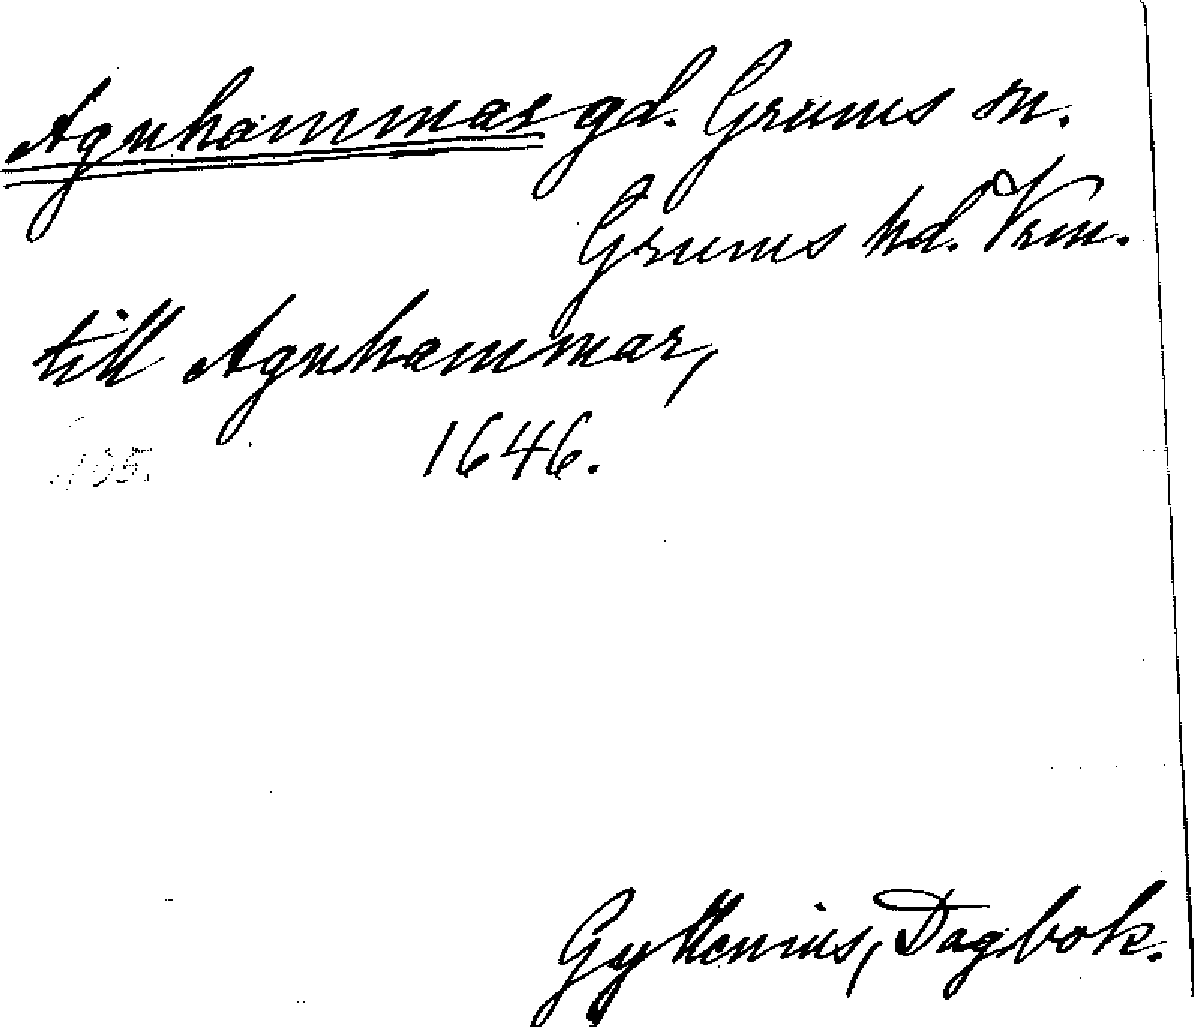 Agnhammar gd. Grums sn.
Grums hd. Vrm.
till Agnhammar,
1646.
Gyllenius, Dagbok.